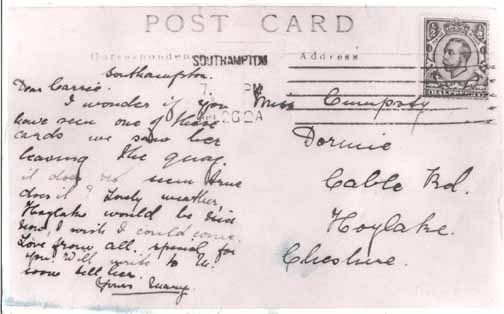 POST CARD
Correspondence
Address
SOUTHAMPTON
7. PM
Southampton.
Dear Carrie.
I wonder if you
have seen one of these
cards we saw her
leaving the quay.
it does not seem true
does it? Lovely weather,
Hoylake would be nice
now, I wish I could come.
Love from all. special for
you. Will write to
soon
Yours
Miss
Dormie
Cable Rd.
Hoylake.
Cheshire.